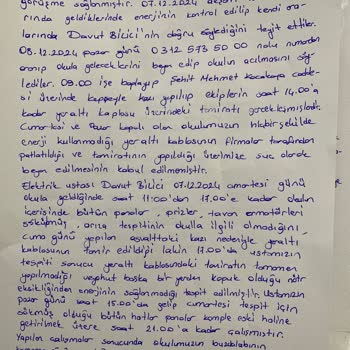 görüşme sağlanmıştır. 07.12.2024
rında geldiklerinde enerjinin kontrol edilip kendi ara-
larında Davut Bilici'nin doğru söylediğini tespit ettiler.
08.12.2024 pazar günü 0312 573 50 00 nolu numaradan
aranıp okula geleceklerini beyan edip okulun açılmasını söy-
lediler. 09.00 işe başlayıp Şehit Mehmet Kocakaya cadde-
si üzerinde kepçeyle kazı yapılıp ekiplerin saat 14.00'a
kadar yeraltı kablosu üzerindeki tamiratı gerçekleşmişlerdir.
Cumartesi ve Pazar kapalı olan okulumuzun hiçbir şekilde
enerji kullanmadığı yeraltı kablosunun firmalar tarafından
patlatıldığı ve tamiratının yapıldığı üzerimize suç olarak
beyan edilmesinin kabul edilmemiştir.
Elektrik ustası Davut Bilici 07.12.2024 cumartesi günü
okula geldiğinde saat 11:00'dan 17.00'e kadar okulun
içerisinde bütün panolar, prizler, tavan armatürleri
sökülmüş, arıza tespitinin okulla ilgili olmadığını,
Cuma günü yapılan asfalttaki kazı nedeniyle yeraltı
kablosunun tamir edildiği lakin 17.00'da ustamızın
tespiti sonucu yeraltı kablosundaki tamiratın tamamen
yapılmadığı veyahut başka bir yerden kopuk olduğu nötr
eksikliğinden enerjinin sağlanmadığı tespit edilmiştir. Ustamızın
pazar günü saat 15.00'da gelip cumartesi tespit için
sökmüş olduğu bütün hatlar panolar komple eski haline
getirilmek üzere saat 21.00'a kadar çalışmıştır.
Yapılan çalışmalar sonucunda okulumuzun buzdolabının